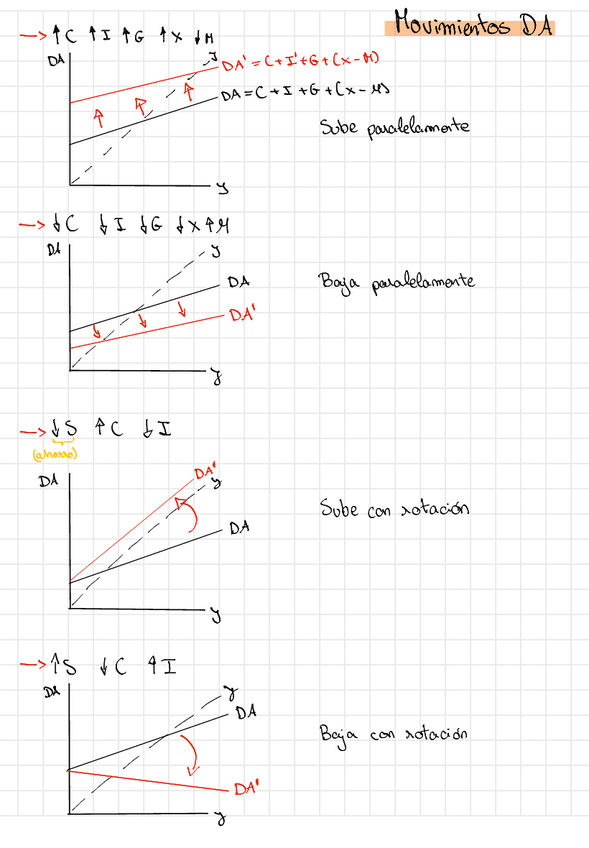 Movimientos DA
→ ↑C ↑I ↑G ↑X ↓M
DA
y
DA' = C + I' + G + (X - M)
DA = C + I + G + (X - M)
Sube paralelamente
y
→ ↓C ↓I ↓G ↓X ↑M
DA
y
DA
Baja paralelamente
DA'
y
→ ↓S ↑C ↓I
(ahorro)
DA'
DA
y
Sube con rotación
DA
y
→ ↑S ↓C ↑I
DA
y
DA
Baja con rotación
DA'
y